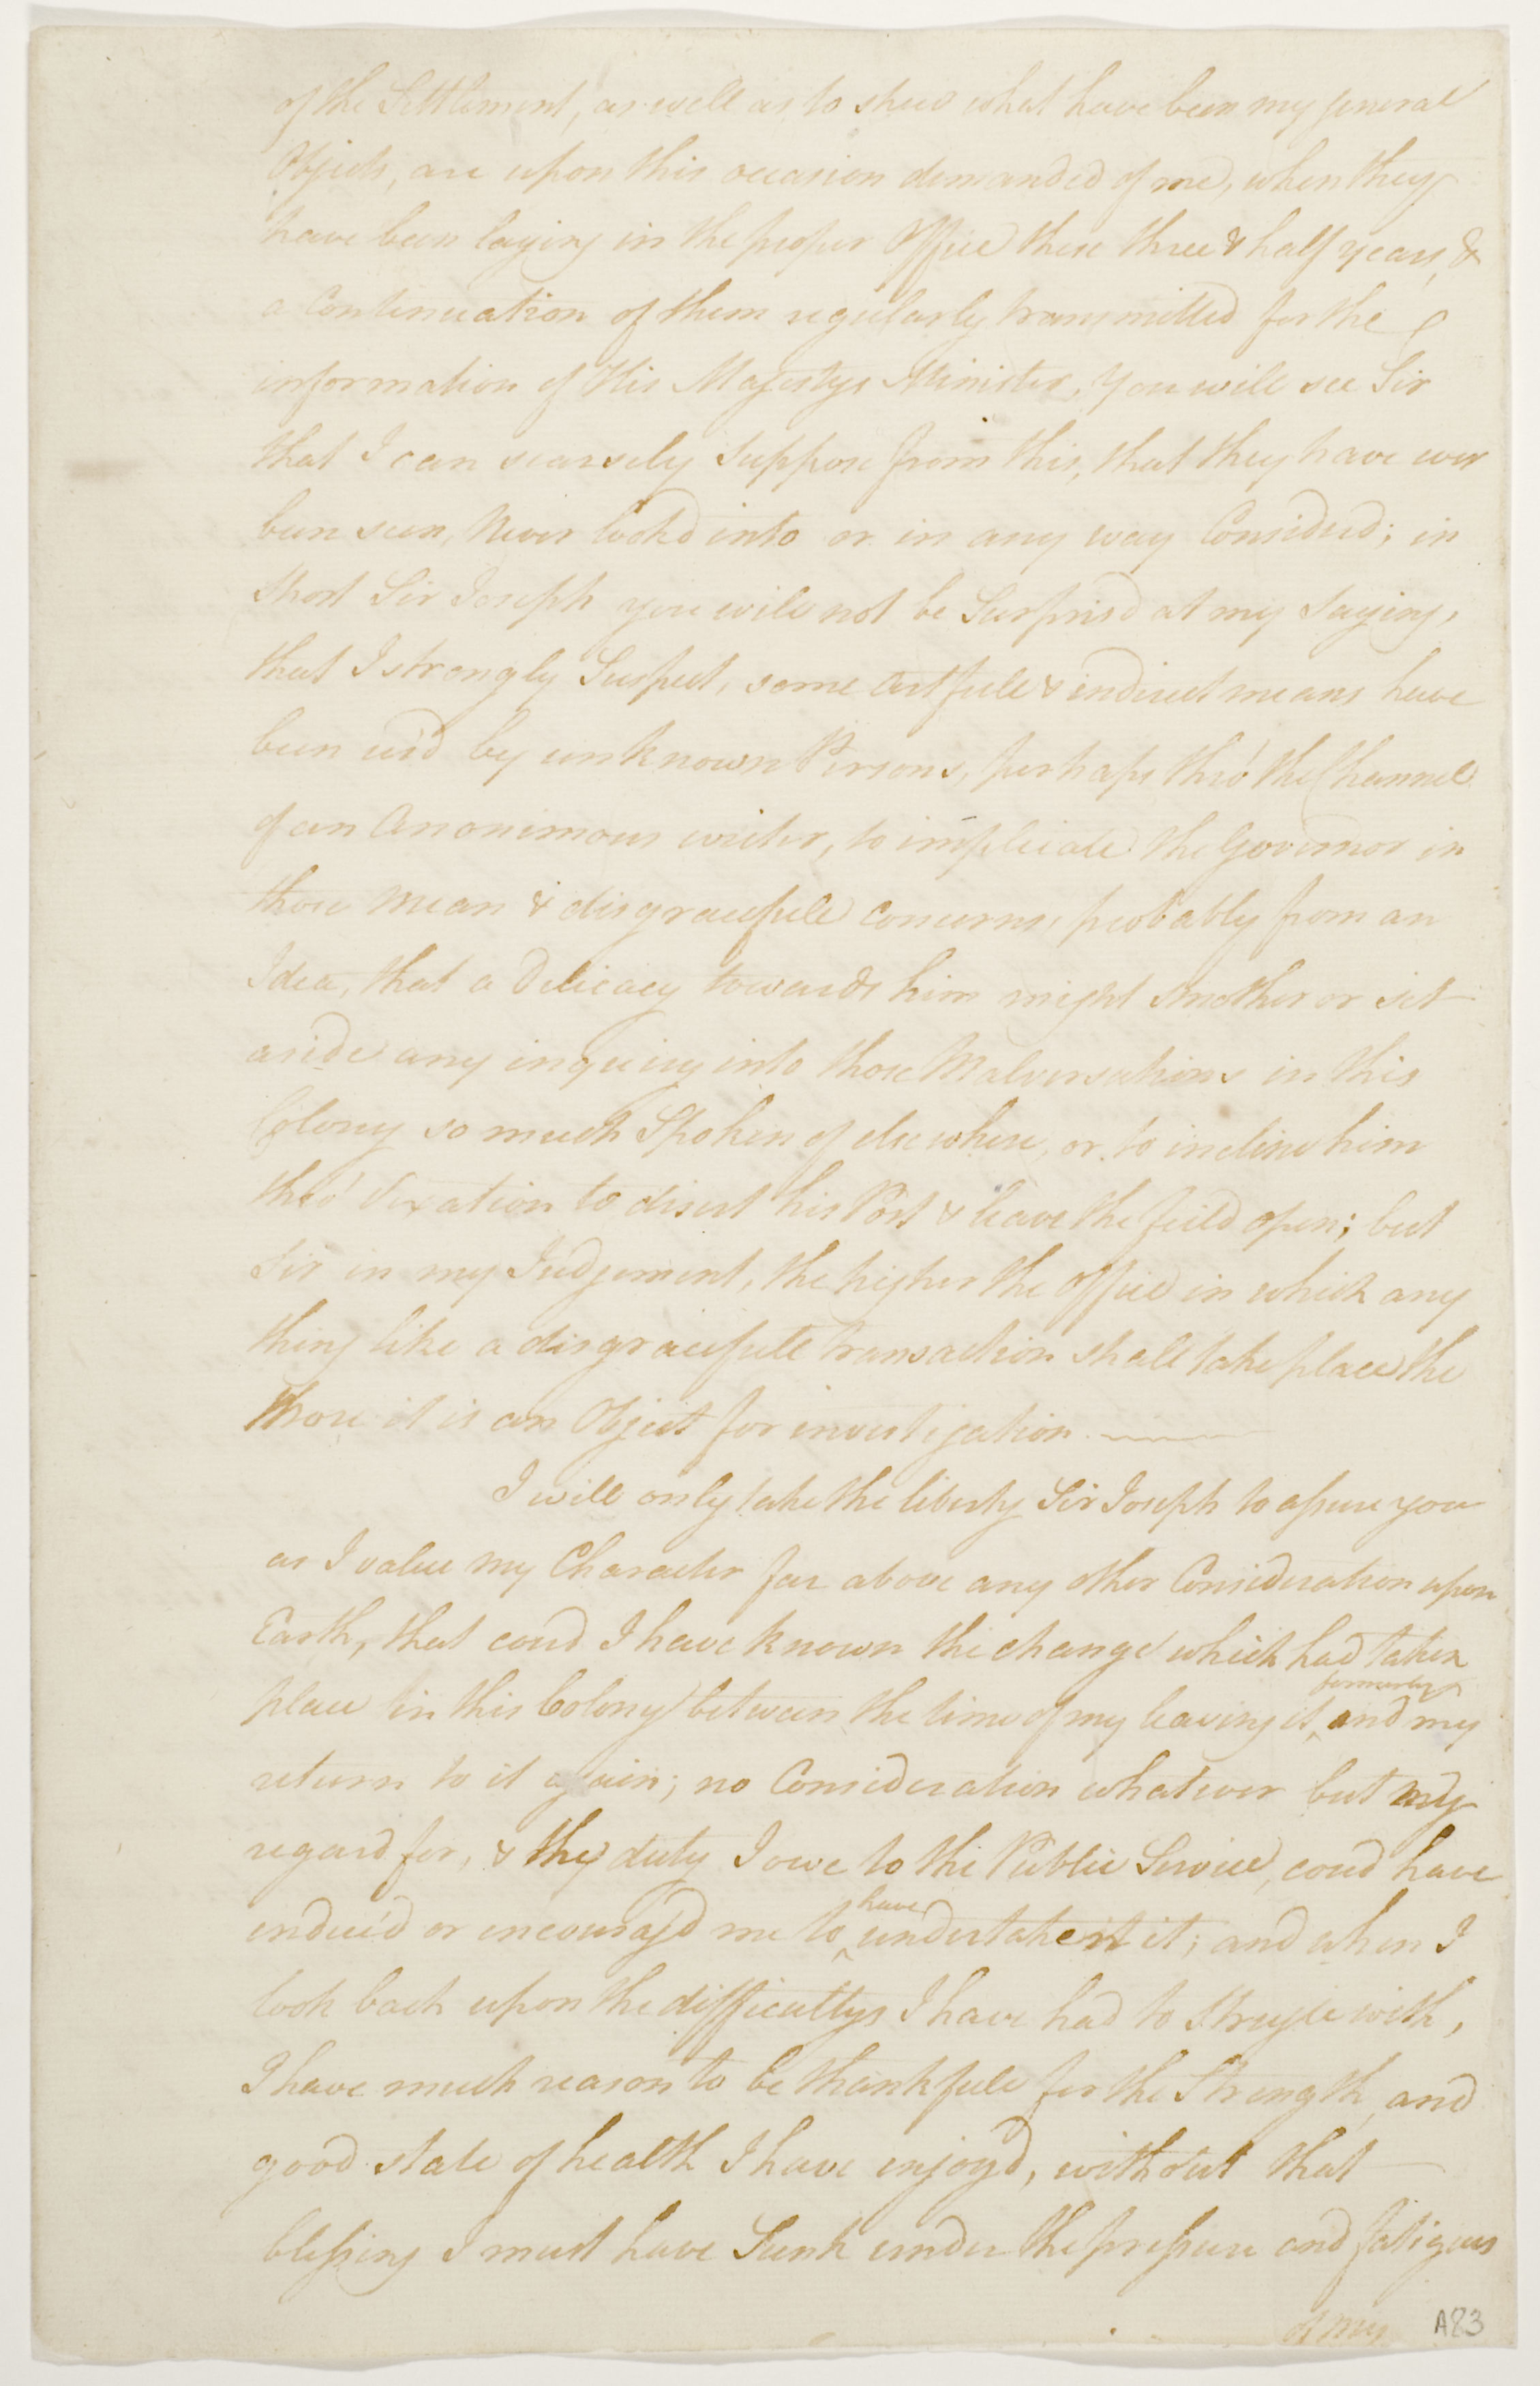 of the Settlement, as well as to shew what have been my general
Objects, are upon this occasion demanded of me, when they
have been laying in the proper Office these three & half years, &
a Continuation of them regularly transmitted for the
information of His Majestys Minister, You will see Sir
that I can scarsely Suppose from this, that they have ever
been seen, Never look'd into or in any way Consider'd; in
short Sir Joseph you will not be Surpris'd at my saying,
that I strongly Suspect, some artfull & indirect means have
been us'd by unknown Persons, perhaps thro' the Channel
of an Anonimous writer, to implicate the Governor in
those mean & disgracefull concerns, probably from an
Idea, that a Delicacy towards him might smother or set
aside any inquiry into those Malversations in this
Colony so much Spoken of elsewhere, or to incline him
thro' vexation to desert his Post & leave the field open; but
Sir in my Judgement, the higher the office in which any
thing like a disgracefull transaction shall take place the
more it is an Object for investigation.
I will only take the liberty Sir Joseph to assure you
as I value my Character far above any other Consideration upon
Earth, that coud I have known the change which had taken
place in this Colony between the time of my leaving it formerly and my
return to it again; no Consideration whatever but my
regard for, & the duty I owe to the Public Service, coud have
enduc'd or encourag'd me to have undertaken it; and when I
look back upon the difficultys I have had to strugle with,
I have much reason to be thankfull for the Strength, and
good state of health I have enjoy'd, without that
blessing I must have Sunk under the pressure and fatigues
of my
A83